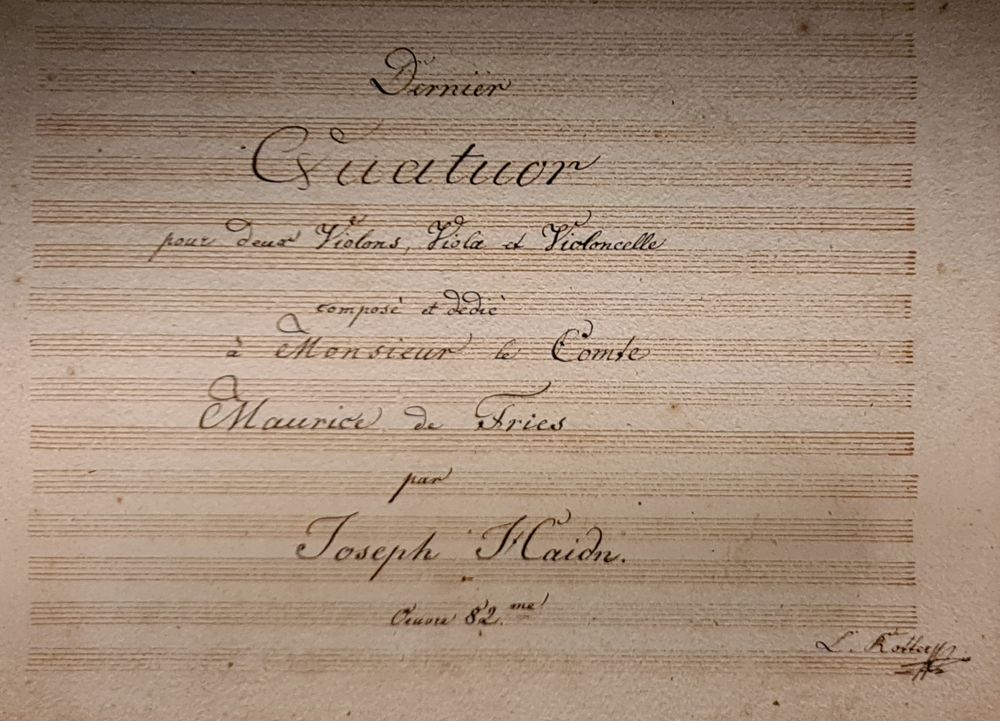 Dernier
Quatuor
pour deux Violons, Viola et Violoncelle
composé et dédié
à Monsieur le Comte
Maurice de Fries
par
Joseph Haidn.
Oeuvre 82.me
L.